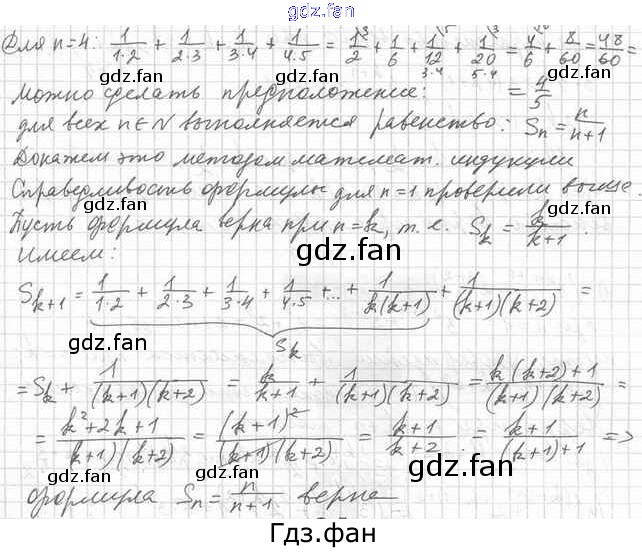 gdz.fan
Для n=4: 1/(1·2) + 1/(2·3) + 1/(3·4) + 1/(4·5) = 1/2 + 1/6 + 1/12 + 1/20 = 4/6 + 8/60 = 48/60 =
3·4 5·4
gdz.fan gdz.fan gdz.fan
можно сделать предположение: = 4/5
для всех n∈N выполняется равенство: Sn = n/(n+1)
Докажем это методом математ. индукции
Справедливость формулы для n=1 проверили выше.
gdz.fan gdz.fan
Пусть формула верна при n=k, т.е. Sk = k/(k+1).
gdz.fan
Имеем:
Sk+1 = 1/(1·2) + 1/(2·3) + 1/(3·4) + 1/(4·5) + ... + 1/(k(k+1)) + 1/((k+1)(k+2)) =
gdz.fan gdz.fan gdz.fan
Sk
= Sk + 1/((k+1)(k+2)) = k/(k+1) + 1/((k+1)(k+2)) = (k(k+2)+1)/((k+1)(k+2)) =
gdz.fan gdz.fan
= (k²+2k+1)/((k+1)(k+2)) = (k+1)²/((k+1)(k+2)) = (k+1)/(k+2) = (k+1)/((k+1)+1) =>
gdz.fan gdz.fan gdz.fan
формула Sn = n/(n+1) верна
Гдз.фан